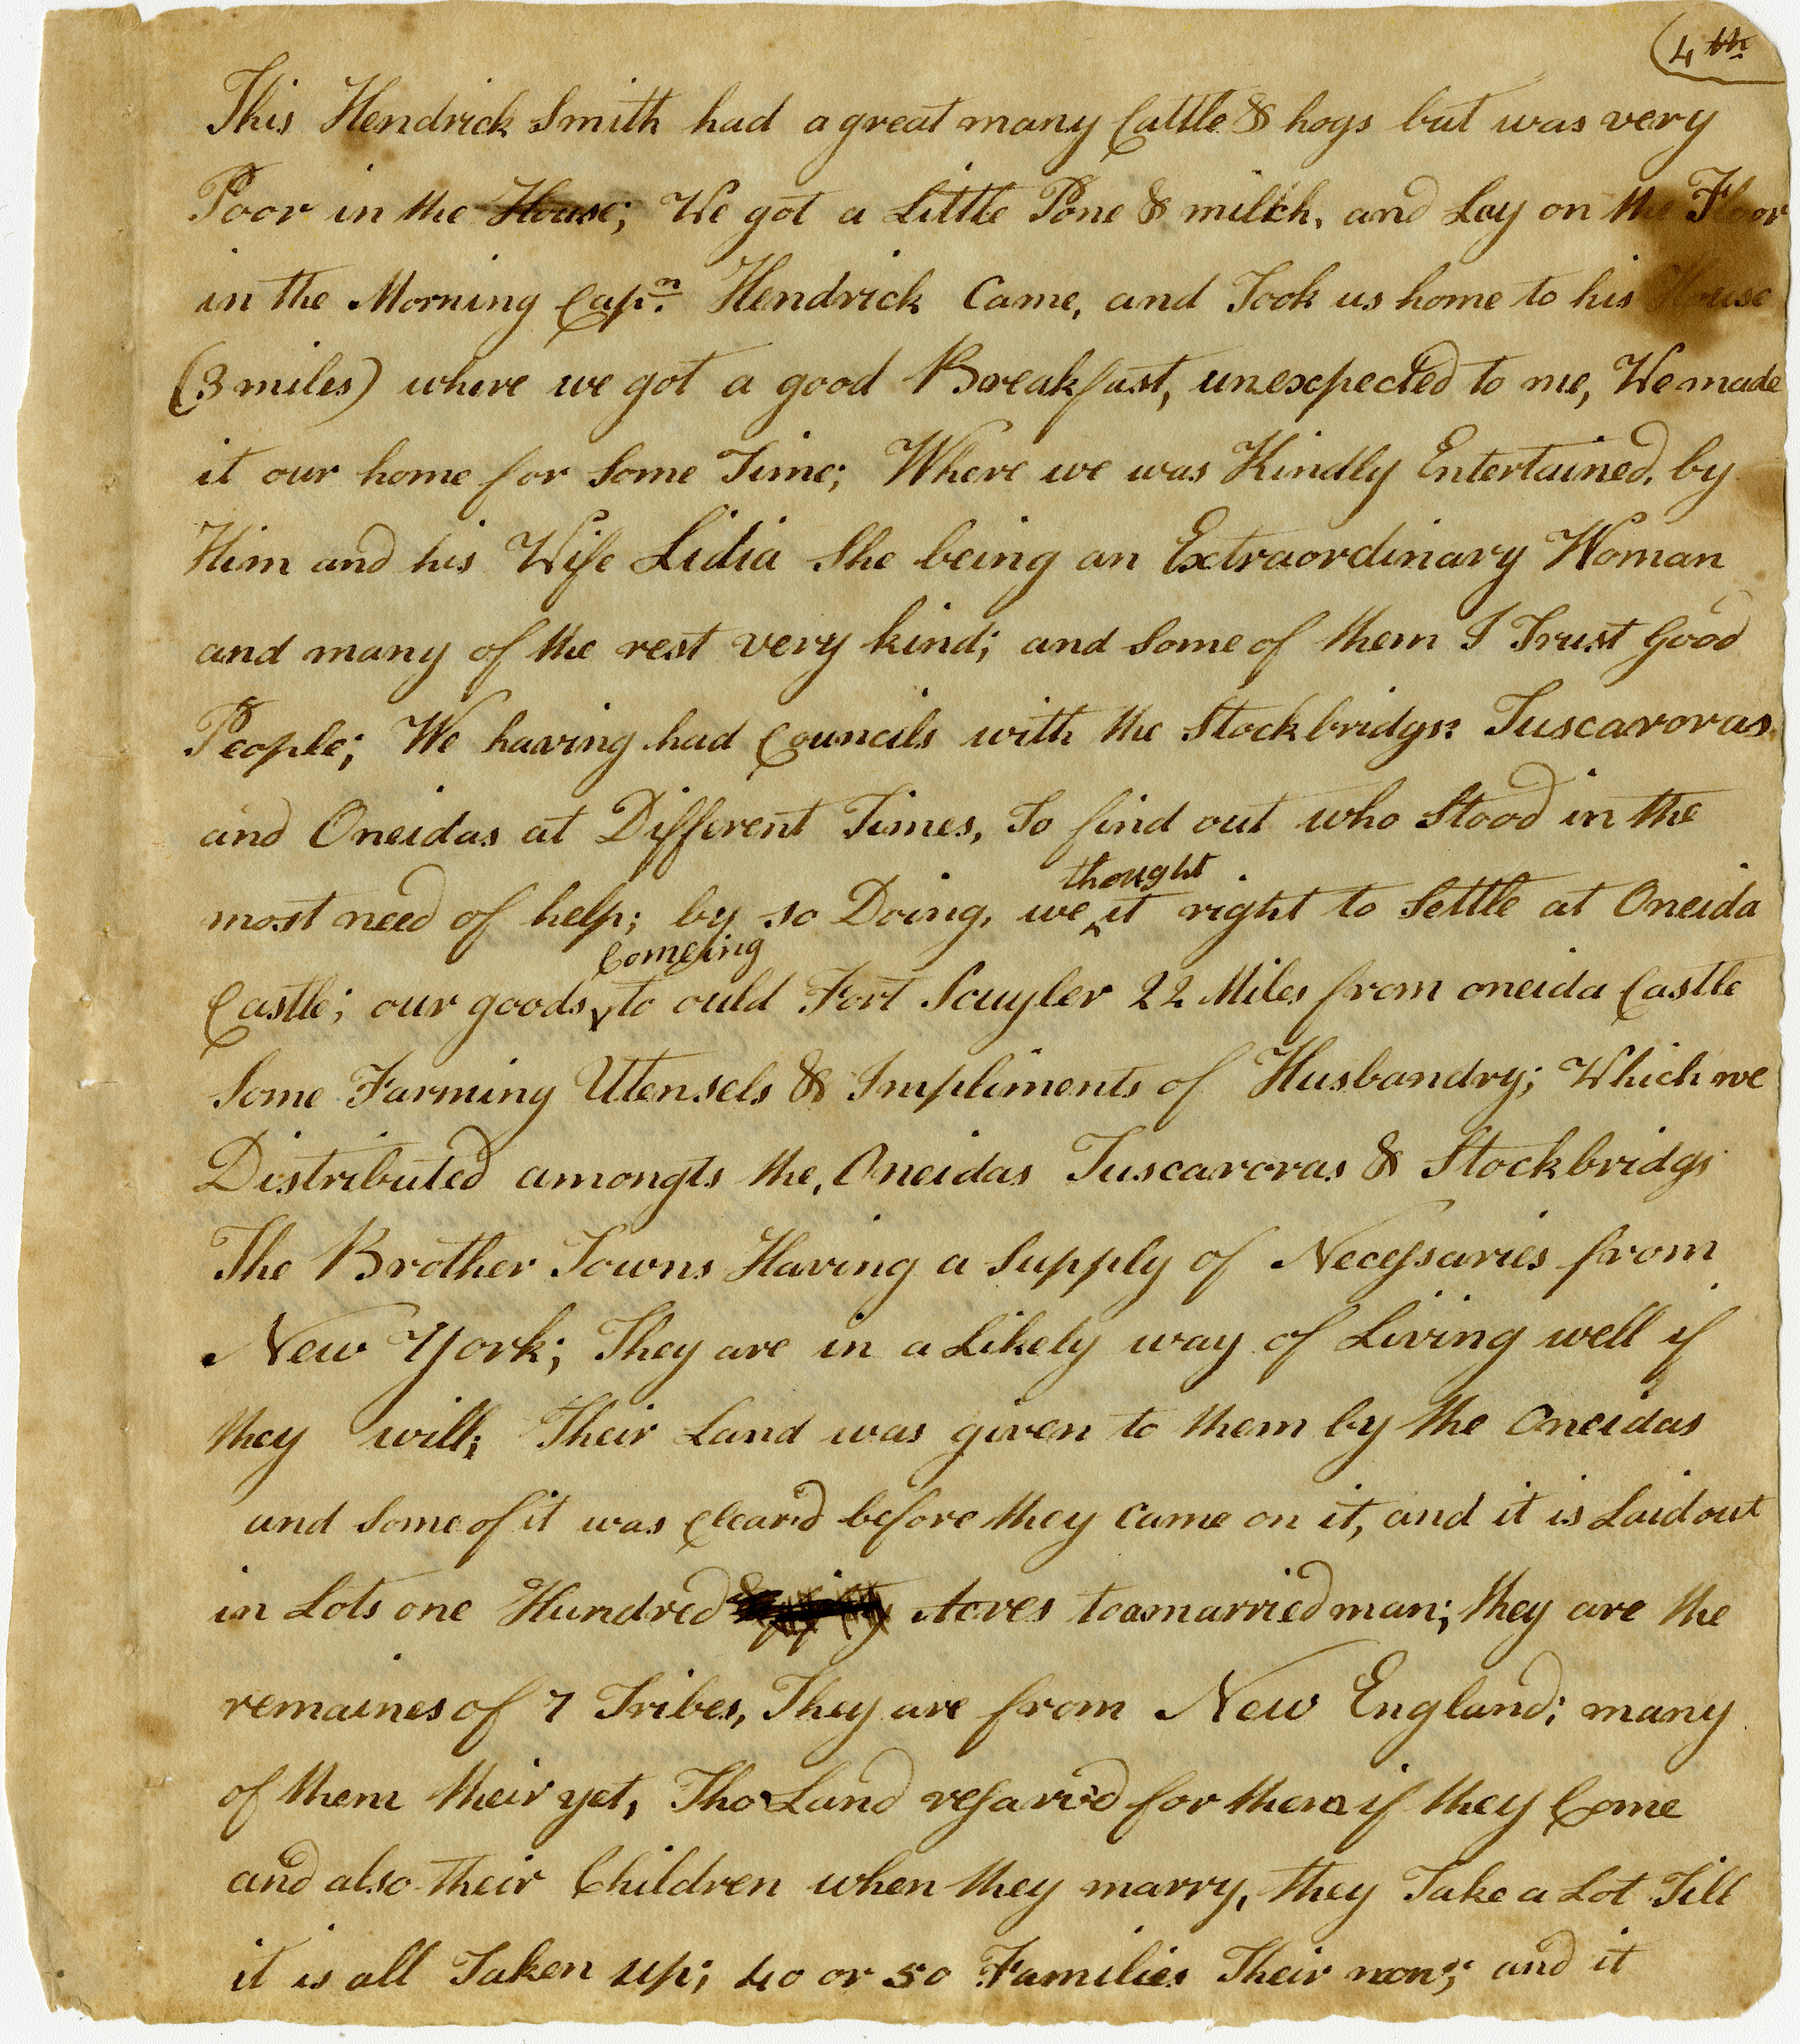 4th
This Hendrick Smith had a great many Cattle & hogs but was very
Poor in the House; We got a Little Pone & milkh, and Lay on the Floor
in the Morning Capn. Hendrick Came, and Took us home to his House
(3 miles) where we got a good Breakfast, unexspected to me, We made
it our home for Some Time; Where we was Kindly Entertained, by
Him and his Wife Lidia She being an Extraordinary Woman
and many of the rest very kind; and Some of them I Trust Good
People; We haaving had Councils with the Stockbridgs: Tuscaroras
and Oneidas at Different Times, To find out who Stood in the
thought
most need of help; by so Doing, we ‸ it right to Settle at Oneida
Comeing
Castle; our goods ‸ to ould Fort Scuyler 22 Miles from oneida Castle
Some Farming Utensels & Impliments of Husbandry; Which we
Distributed amongts the, Oneidas Tuscaroras & Stockbridgs
The Brother Towns Having a Supply of Necessaries from
New York; They are in a Likely way of Living well if
they will; Their Land was given to them by the Oneidas
and Some of it was Cleard before they Came on it, and it is Laid out
in Lots one Hundred Acres to a married man; they are the
remaines of 7 Tribes, They are from New England; many
of them their yet, Tho Land resarv'd for them if they Come
and also their Children when they marry, they Take a Lot Till
it is all Taken up; 40 or 50 Families Their now; and it